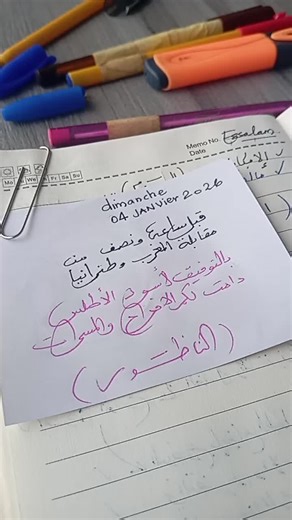 Memo No. Essalam
Date
Mo Tu We Th Fr Sa Su
dimanche
04 JANVIER 2026
قبل ساعة ونصف من
مقابلة المغرب وطنزانيا
بالتوفيق لأسود الأطلس
دامت لكم الأفراح والمسرات
(الناظور)